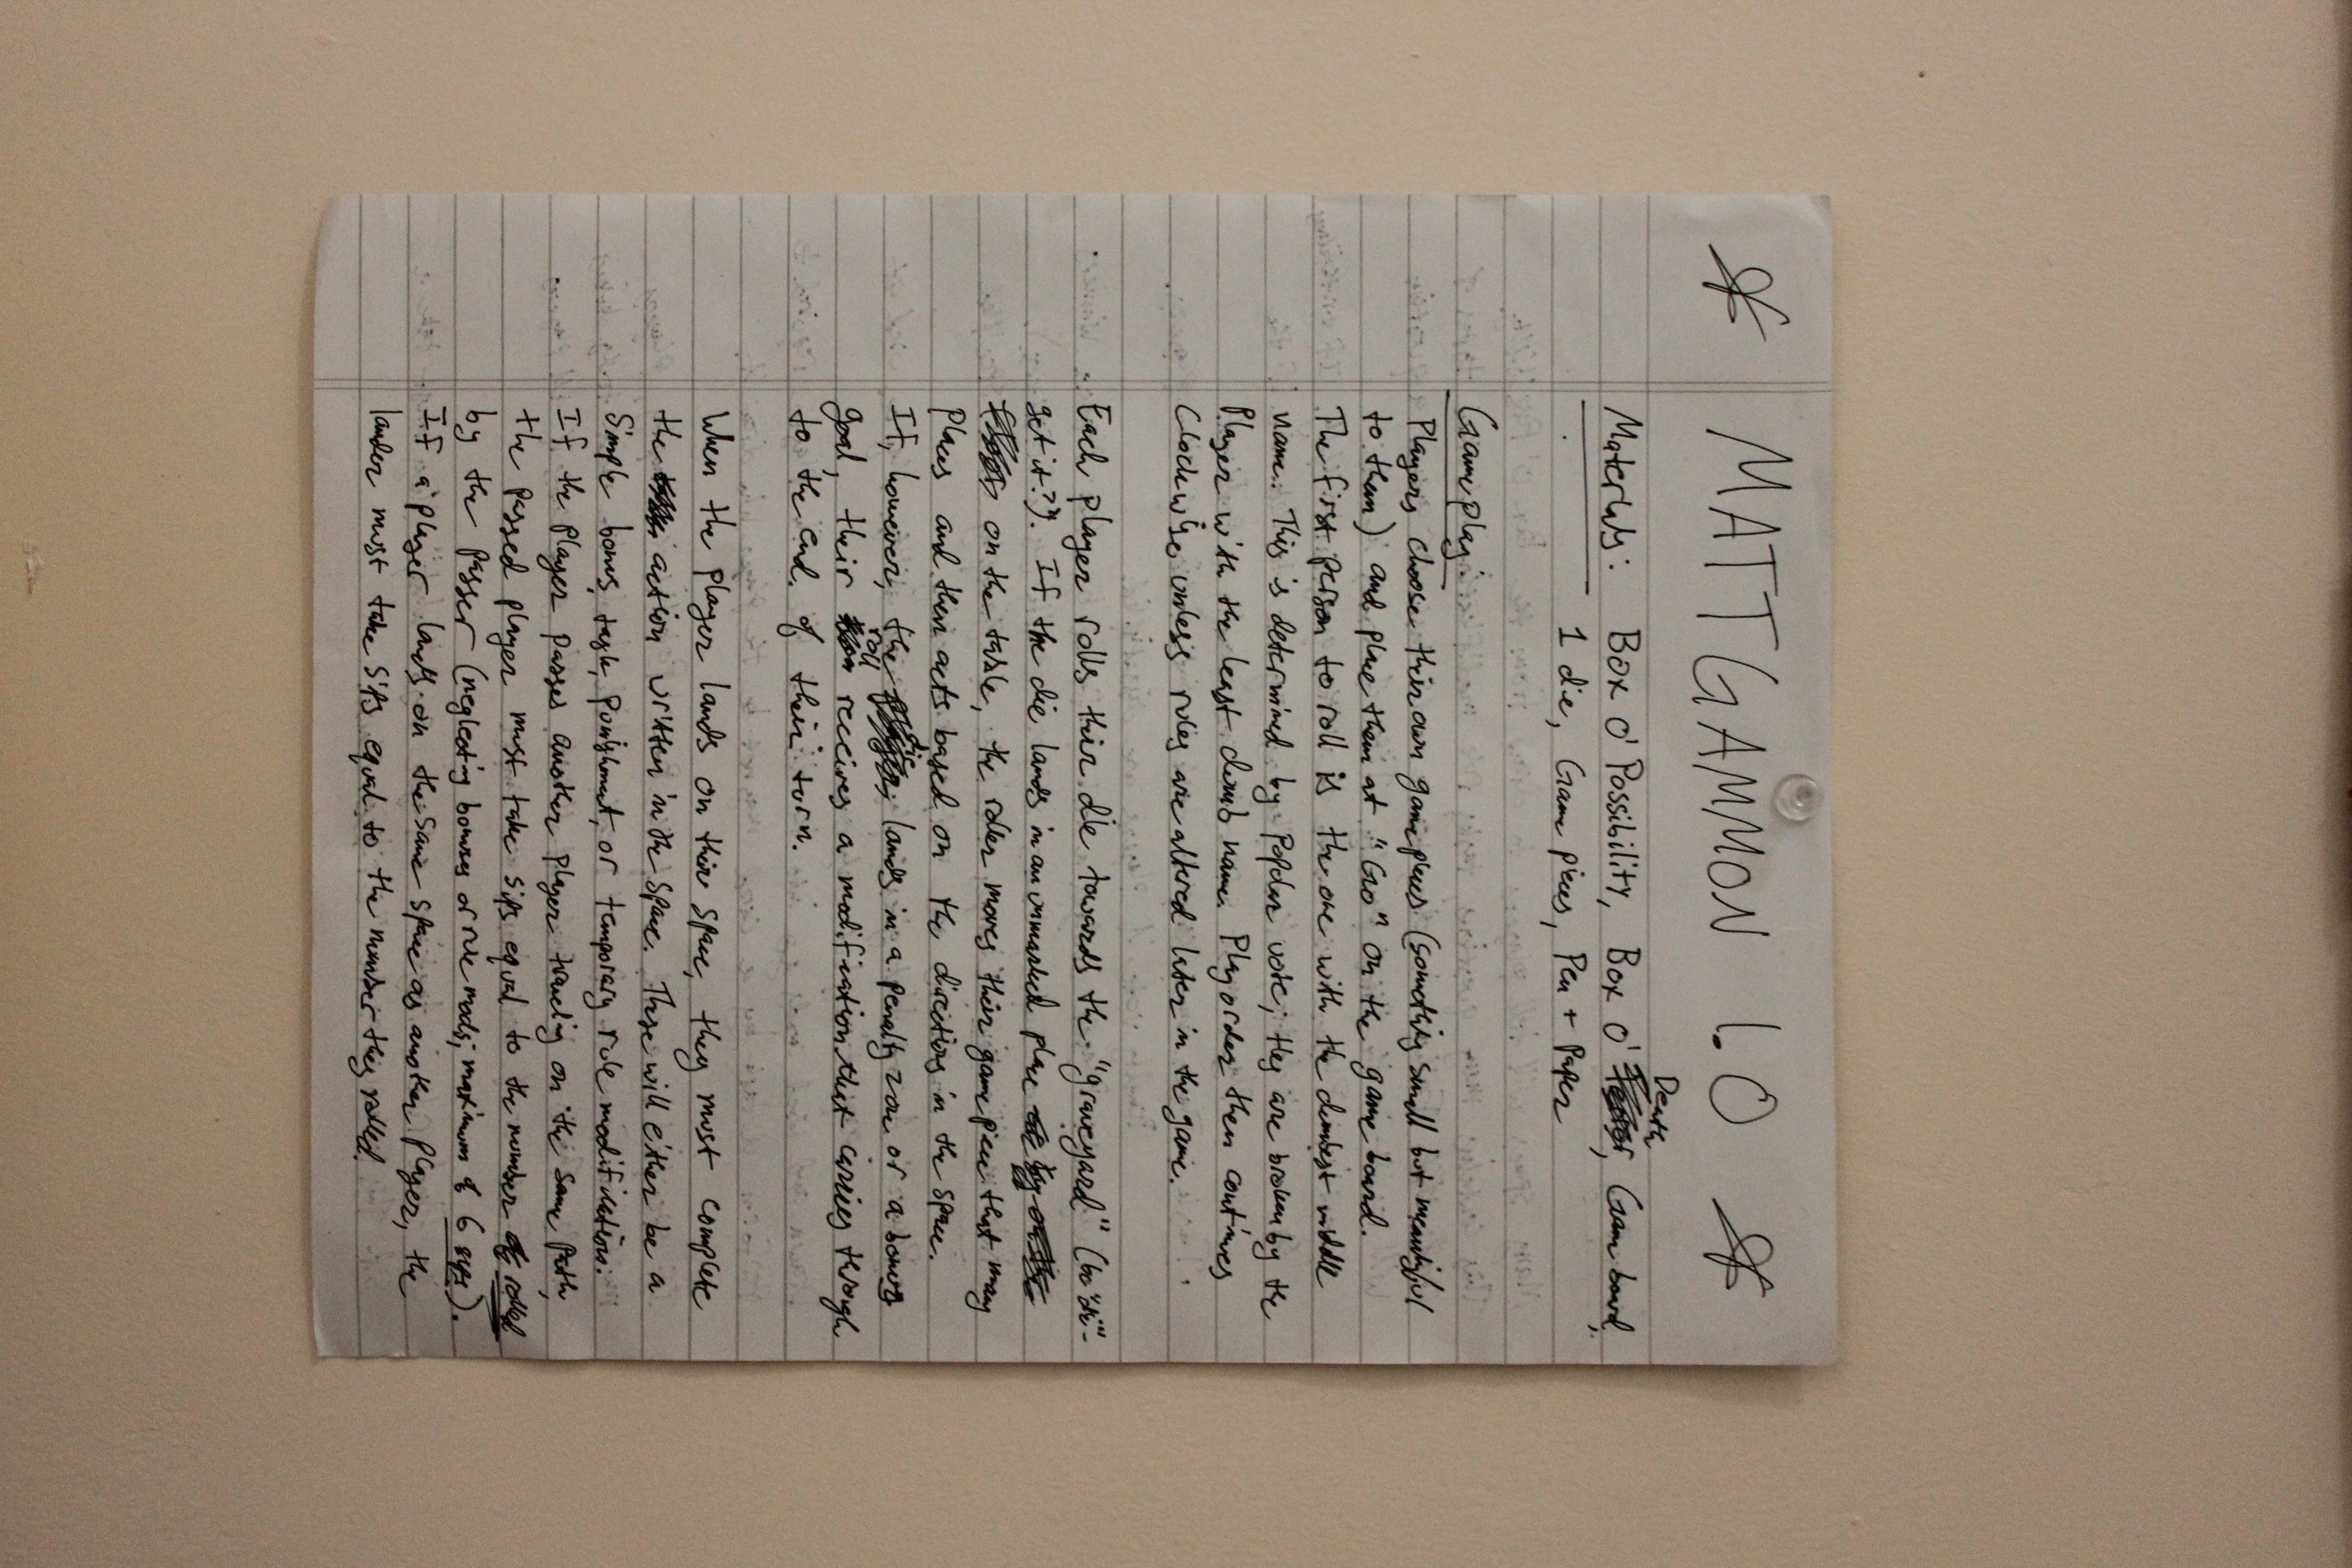 * MATTGAMMON 1.0 *
Death
Materials: Box O' Possibility, Box O' Game board,
1 die, Game pieces, Pen + Paper
Gameplay:
Players choose their own game pieces (something small but meaningful
to them) and place them at "Go" on the game board.
The first person to roll is the one with the dumbest middle
name. This is determined by popular vote; ties are broken by the
Player with the least dumb name. Play order then continues
Clockwise unless rules are altered later in the game.
Each player rolls their die towards the "graveyard" (ho "di"-
get it??). If the die lands in an unmarked place
on the table, the roller moves their game piece that many
places and then acts based on the directions in the space.
die
If, however, the lands in a penalty zone or a bonus
roll
goal, their receives a modification that carries through
to the end of their turn.
When the player lands on their space, they must complete
the action written in the space. These will either be a
Simple bonus, task, punishment, or temporary rule modification.
If the player passes another player traveling on the same path,
the passed player must take sips equal to the number rolled
by the passer (neglecting bonuses or rule mods; maximum of 6 sips).
If a player lands on the same space as another player, the
lander must take sips equal to the number they rolled.